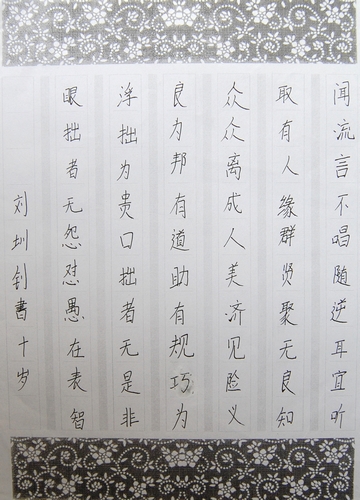 闻流言不唱随逆耳宜听
取有人缘群贤聚无良知
众众离成人美济见险义
良为邦有道助有规巧为
浮拙为贵口拙者无是非
眼拙者无怨怼愚在表智
刘圳钊書十岁